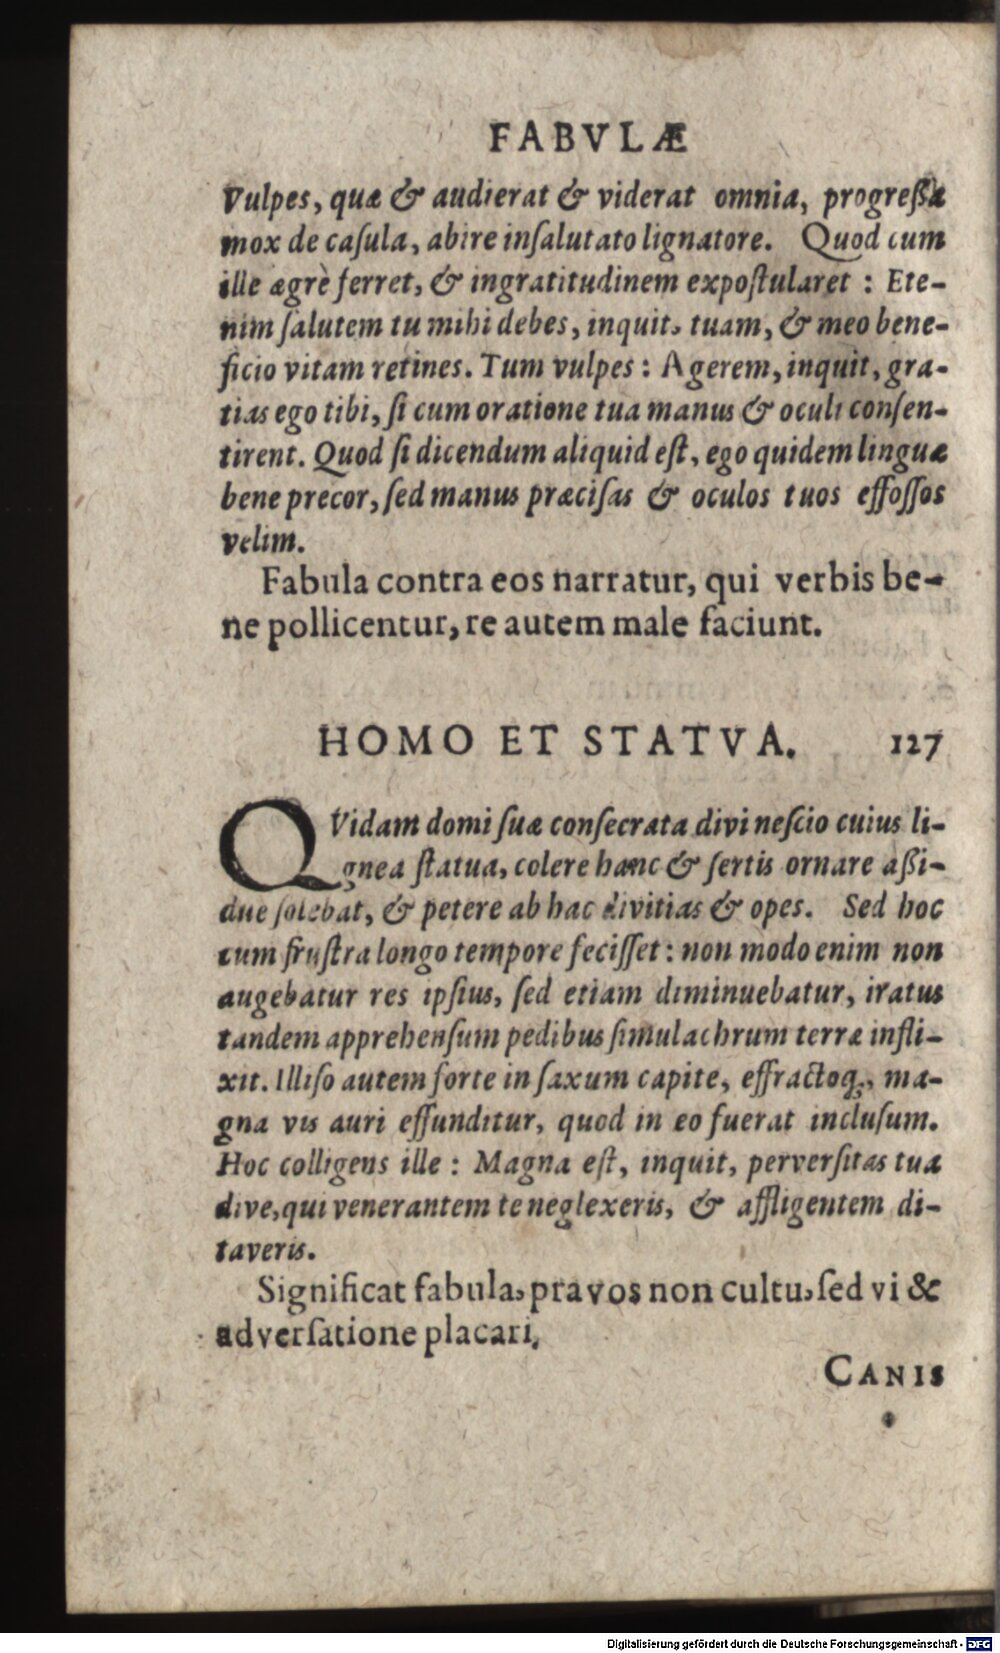 FABVLÆ
Vulpes, quæ & audierat & viderat omnia, progreßa
mox de caſula, abire inſalutato lignatore. Quod cum
ille ægrè ferret, & ingratitudinem expoſtularet : Ete-
nim ſalutem tu mihi debes, inquit, tuam, & meo bene-
ficio vitam retines. Tum vulpes : Agerem, inquit, gra-
tias ego tibi, ſi cum oratione tua manus & oculi conſen-
tirent. Quod ſi dicendum aliquid eſt, ego quidem linguæ
bene precor, ſed manus præciſas & oculos tuos effoſſos
velim.
Fabula contra eos narratur, qui verbis be-
ne pollicentur, re autem male faciunt.
HOMO ET STATVA. 127
QVidam domi ſuæ conſecrata divi neſcio cuius li-
gnea ſtatua, colere hanc & ſertis ornare aßi-
due ſolebat, & petere ab hac divitias & opes. Sed hoc
cum fruſtra longo tempore feciſſet : non modo enim non
augebatur res ipſius, ſed etiam diminuebatur, iratus
tandem apprehenſum pedibus ſimulachrum terræ infli-
xit. Illiſo autem forte in ſaxum capite, effractoq;, ma-
gna vis auri effunditur, quod in eo fuerat incluſum.
Hoc colligens ille : Magna eſt, inquit, perverſitas tua
dive, qui venerantem te neglexeris, & affligentem di-
taveris.
Significat fabula, pravos non cultu, ſed vi &
adverſatione placari.
CANIS
Digitalisierung gefördert durch die Deutsche Forschungsgemeinschaft - DFG